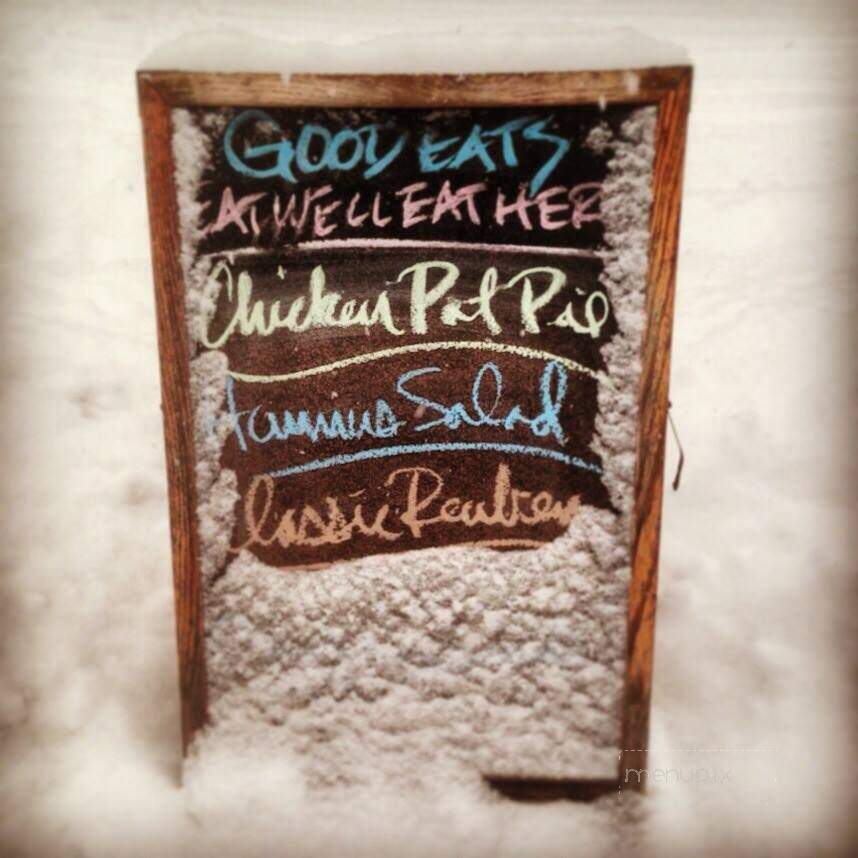 GOOD EATS
EAT WELL EAT HERE
Chicken Pot Pie
Hummus Salad
Classic Reuben
menupix